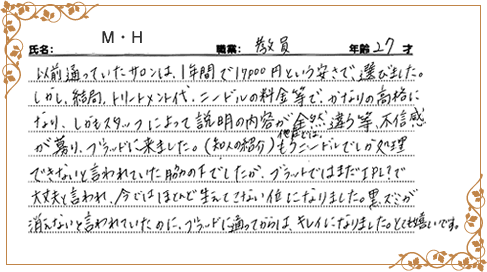 氏名: M・H 職業: 教員 年齢 27 才
以前通っていたサロンは、1年間で17000円という安さで、選びました。
しかし、結局、トリートメント代・ニードルの料金等で、かなりの高格に
なり、しかもスタッフによって説明の内容が全然違う等、不信感
が募り、ブラッドに来ました。(知人の紹介) 他店では、もうニードルでしか処理
できないと言われていた脇の下でしたが、ブラットではまだIPLで
大丈夫と言われ、今ではほとんど生えてこない位になりました。黒ズミが
消えないと言われていたのに、ブラッドに通ってからは、キレイになりました。とても嬉しいです。